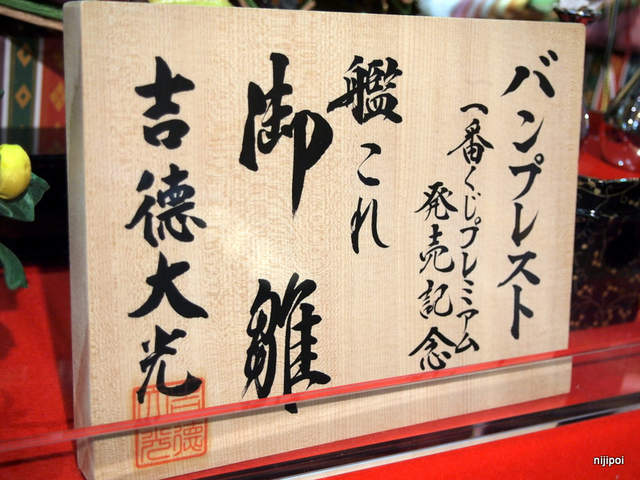 バンプレスト
一番くじプレミアム
発売記念
艦これ
御雛
吉德大光
nijipoi